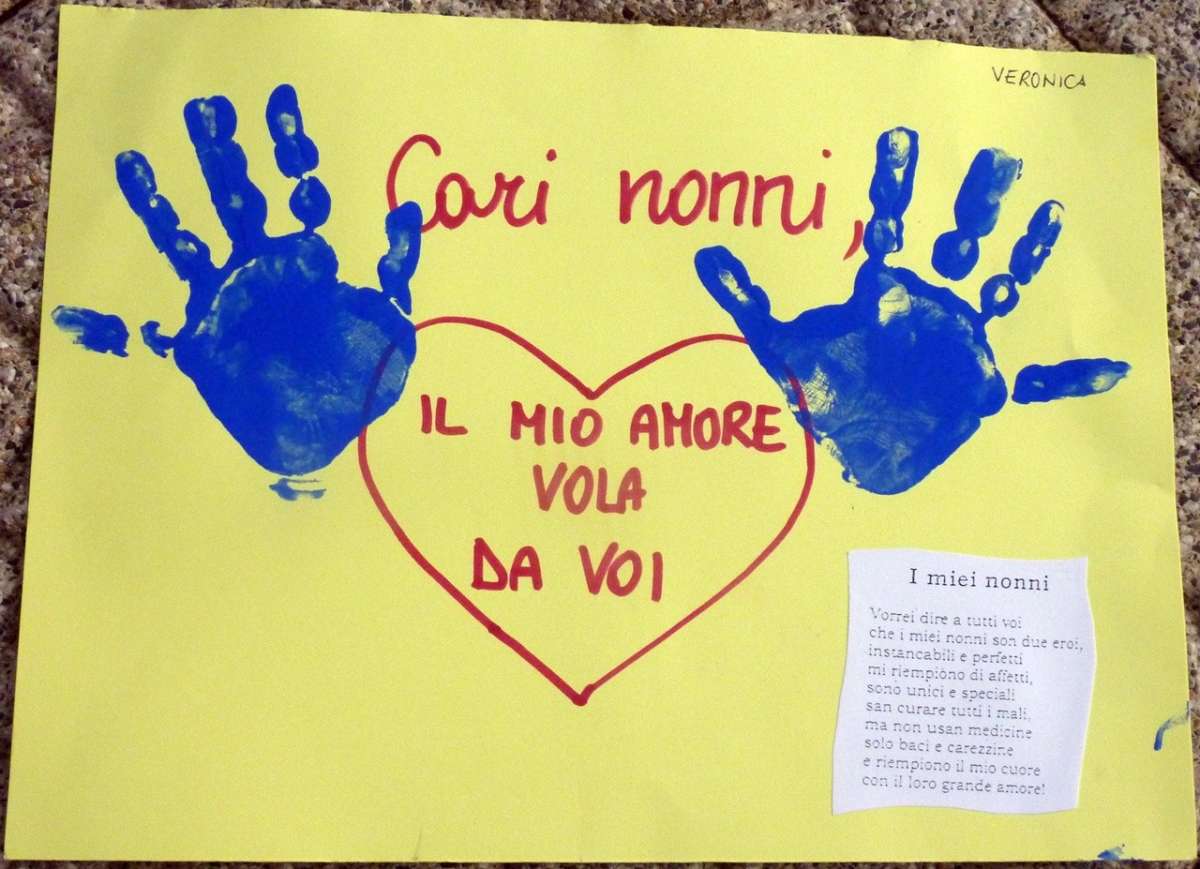 VERONICA
Cari nonni,
IL MIO AMORE
VOLA
DA VOI
I miei nonni
Vorrei dire a tutti voi
che i miei nonni son due eroi,
instancabili e perfetti
mi riempiono di affetti,
sono unici e speciali
san curare tutti i mali,
ma non usan medicine
solo baci e carezzine
e riempiono il mio cuore
con il loro grande amore!